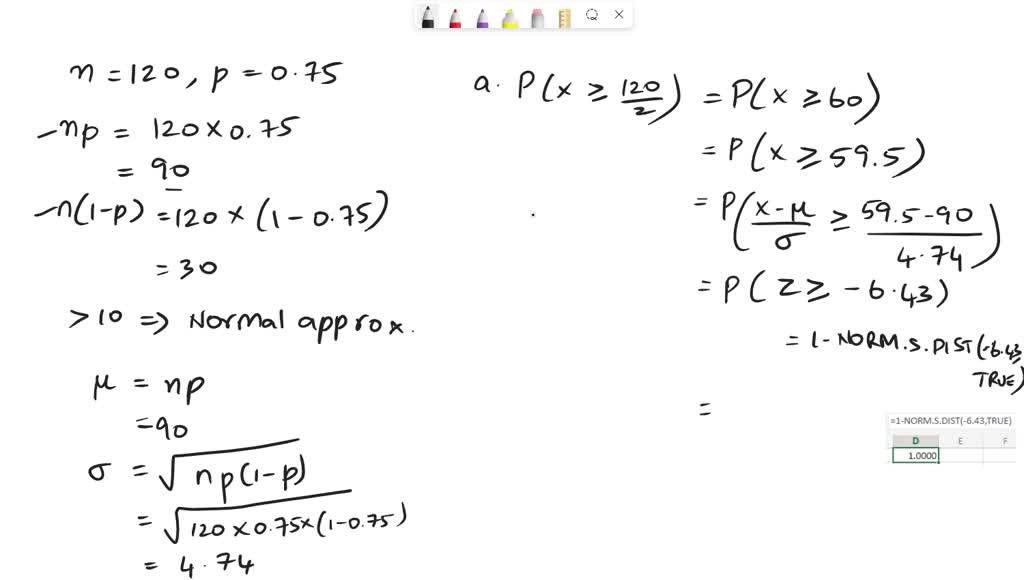 n = 120, p = 0.75
- np = 120 × 0.75
= 90
- n(1-p) = 120 × (1 - 0.75)
= 30
> 10 => Normal approx.
μ = np
= 90
σ = √np(1-p)
= √120 × 0.75 × (1-0.75)
= 4.74
a. P(x ≥ 120/2) = P(x ≥ 60)
= P(x ≥ 59.5)
= P(x-μ/σ ≥ 59.5-90/4.74)
= P(Z ≥ -6.43)
= 1 - NORM.S.DIST(-6.43,
TRUE)
=
=1-NORM.S.DIST(-6.43,TRUE)
D E F
1.0000